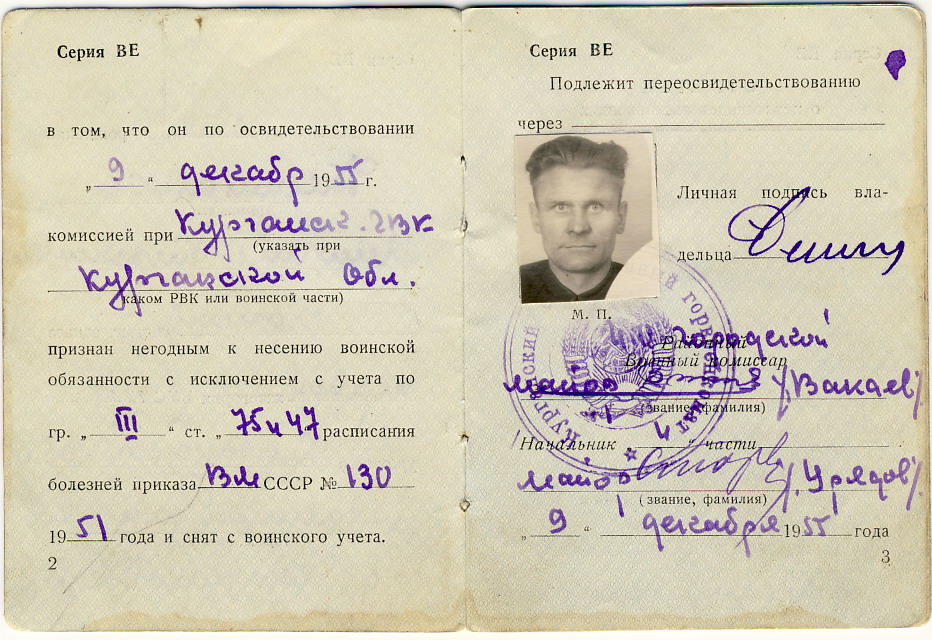 Серия ВЕ
в том, что он по освидетельствовании
„ 9 “ декабр 1955 г.
комиссией при Курганск. ГВК
(указать при
Курганской Обл.
каком РВК или воинской части)
признан негодным к несению воинской
обязанности с исключением с учета по
гр. „ III “ ст. „ 75 и 47 расписания
болезней приказа ВМ СССР № 130
1951 года и снят с воинского учета.
2
Серия ВЕ
Подлежит переосвидетельствованию
через
Личная подпись вла-
дельца
М. П.
Городской
Районный
Военный комиссар
майор /Вакаев/
(звание, фамилия)
Начальник 4 части
майор /Урядов/
(звание, фамилия)
„ 9 “ декабря 1955 года
3